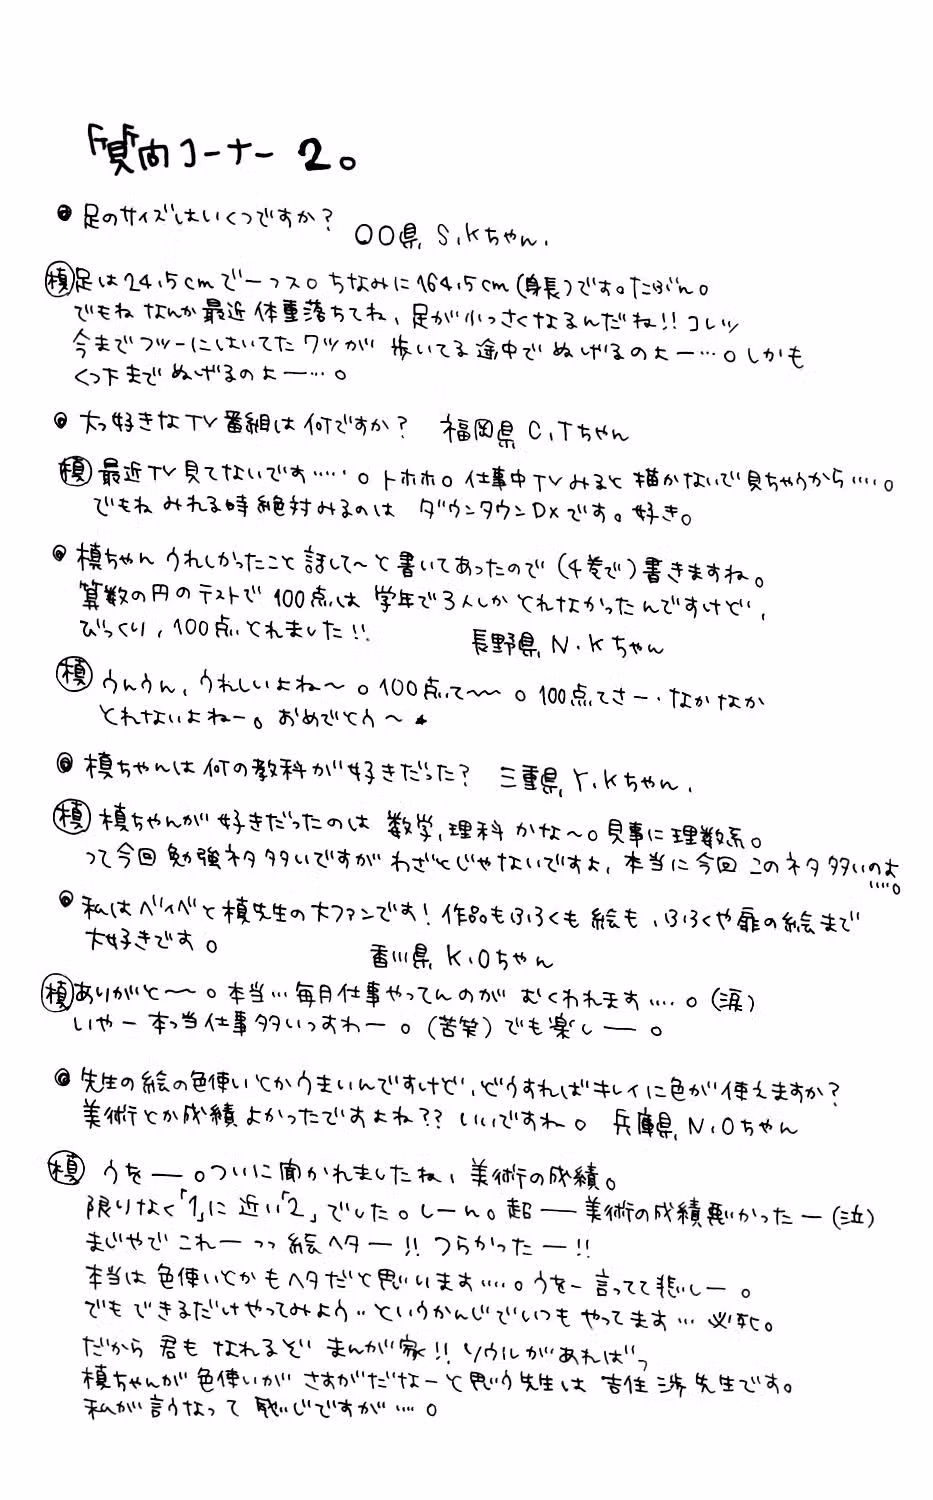 質問コーナー 2。
◎ 足のサイズはいくつですか?
〇〇県 S.Kちゃん.
槙 足は24.5cmでーっス。ちなみに164.5cm(身長)です。たぶん。
でもね なんか最近体重落ちてね、足が小っさくなるんだね!! コレッ
今までフツーにはいてたクツが 歩いてる途中で ぬげるのよー…。しかも
くつ下まで ぬげるのよー…。
◎ 大っ好きなTV番組は何ですか? 福岡県 C.Tちゃん
槙 最近TV見てないです……。トホホ。仕事中TVみると描かないで見ちゃうから……。
でもね みれる時絶対みるのは ダウンタウンDXです。好き。
◎ 槙ちゃん うれしかったこと 話して〜と書いてあったので(4巻で)書きますね。
算数の円のテストで 100点は 学年で3人しか とれなかったんですけど、
びっくり、100点とれました!!
長野県 N.Kちゃん
槙 うんうん、うれしいよね〜。100点って〜〜。100点てさー・なかなか
とれないよねー。おめでとう〜★
◎ 槙ちゃんは何の教科が好きだった? 三重県 Y.Kちゃん.
槙 槙ちゃんが 好きだったのは 数学,理科 かな〜。見事に理数系。
って今回 勉強ネタ多いですが わざとじゃないですよ、本当に今回 このネタ多いのよ
……。
◎ 私はベイベと槙先生の大ファンです! 作品もふろくも 絵も、ふろくや扉の絵まで
大好きです。
香川県 K.Oちゃん
槙 ありがと〜〜。本当…毎月仕事やってんのが むくわれます……。(涙)
いやー 本っ当仕事多いっすわー。(苦笑)でも楽しー。
◎ 先生の絵の色使いとかうまいんですけど、どうすればキレイに色が使えますか?
美術とか成績よかったですよね?? いいですね。 兵庫県 N.Oちゃん
槙 うをー。ついに聞かれましたね、美術の成績。
限りなく「1」に近い「2」でした。しーん。超ー美術の成績悪かったー(泣)
まじやで これーっっ 絵ヘター!! つらかったー!!
本当は 色使いとかもヘタだと思います……。うをー 言ってて悲しー。
でも できるだけやってみよう‥というかんじでいつも やってます… 必死。
だから 君も なれるぞ まんが家!! ソウルがあればっ
槙ちゃんが 色使いが さすがだなーと思う先生は 吉住 渉 先生です。
私が言うなって 恥じですが……。